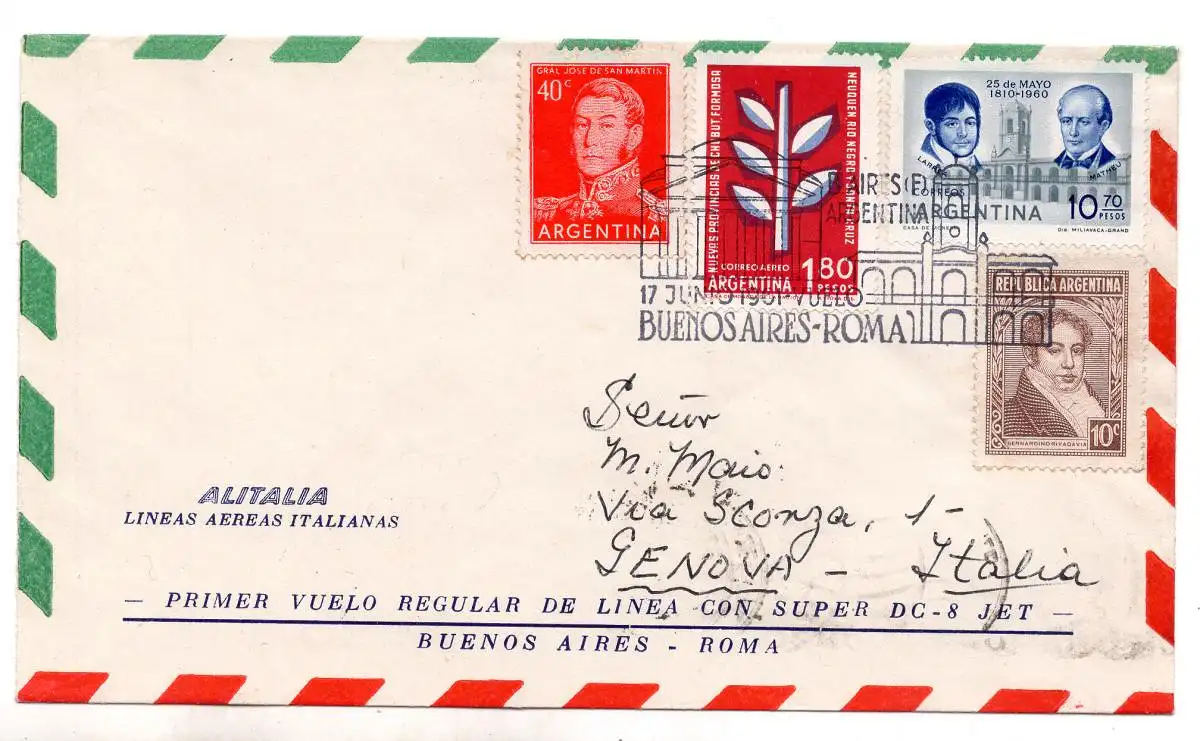 GRAL JOSE DE SAN MARTIN
40c
ARGENTINA
NUEVAS PROVINCIAS DE CHUBUT, FORMOSA
NEUQUEN RIO NEGRO Y SANTA CRUZ
CORREO AEREO
ARGENTINA 1.80 PESOS
25 de MAYO
1810-1960
LARREA
MATHEU
CORREOS
ARGENTINA
10.70 PESOS
CASA DE MONEDA
DIB. MILIAVACA-GRAND
B. AIRES (F)
ARGENTINA
17 JUNIO 1961 VUELO
BUENOS AIRES-ROMA
REPUBLICA ARGENTINA
BERNARDINO RIVADAVIA
10c
Señor
M. Maio
Via Sconza, 1-
GENOVA - Italia
ALITALIA
LINEAS AEREAS ITALIANAS
— PRIMER VUELO REGULAR DE LINEA CON SUPER DC-8 JET —
BUENOS AIRES - ROMA